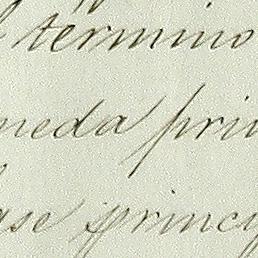 termino
neda prin
ase princi